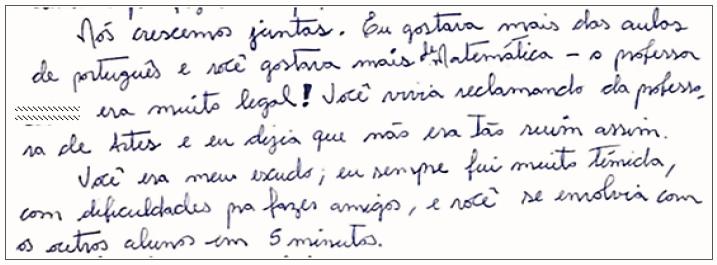 Nós crescemos juntas. Eu gostava mais das aulas
de português e você gostava mais de Matemática – o professor
era muito legal! Você vivia reclamando da professo
ra de Artes e eu dizia que não era tão ruim assim.
Você era meu escudo; eu sempre fui muito tímida,
com dificuldades pra fazer amigos, e você se envolvia com
os outros alunos em 5 minutos.